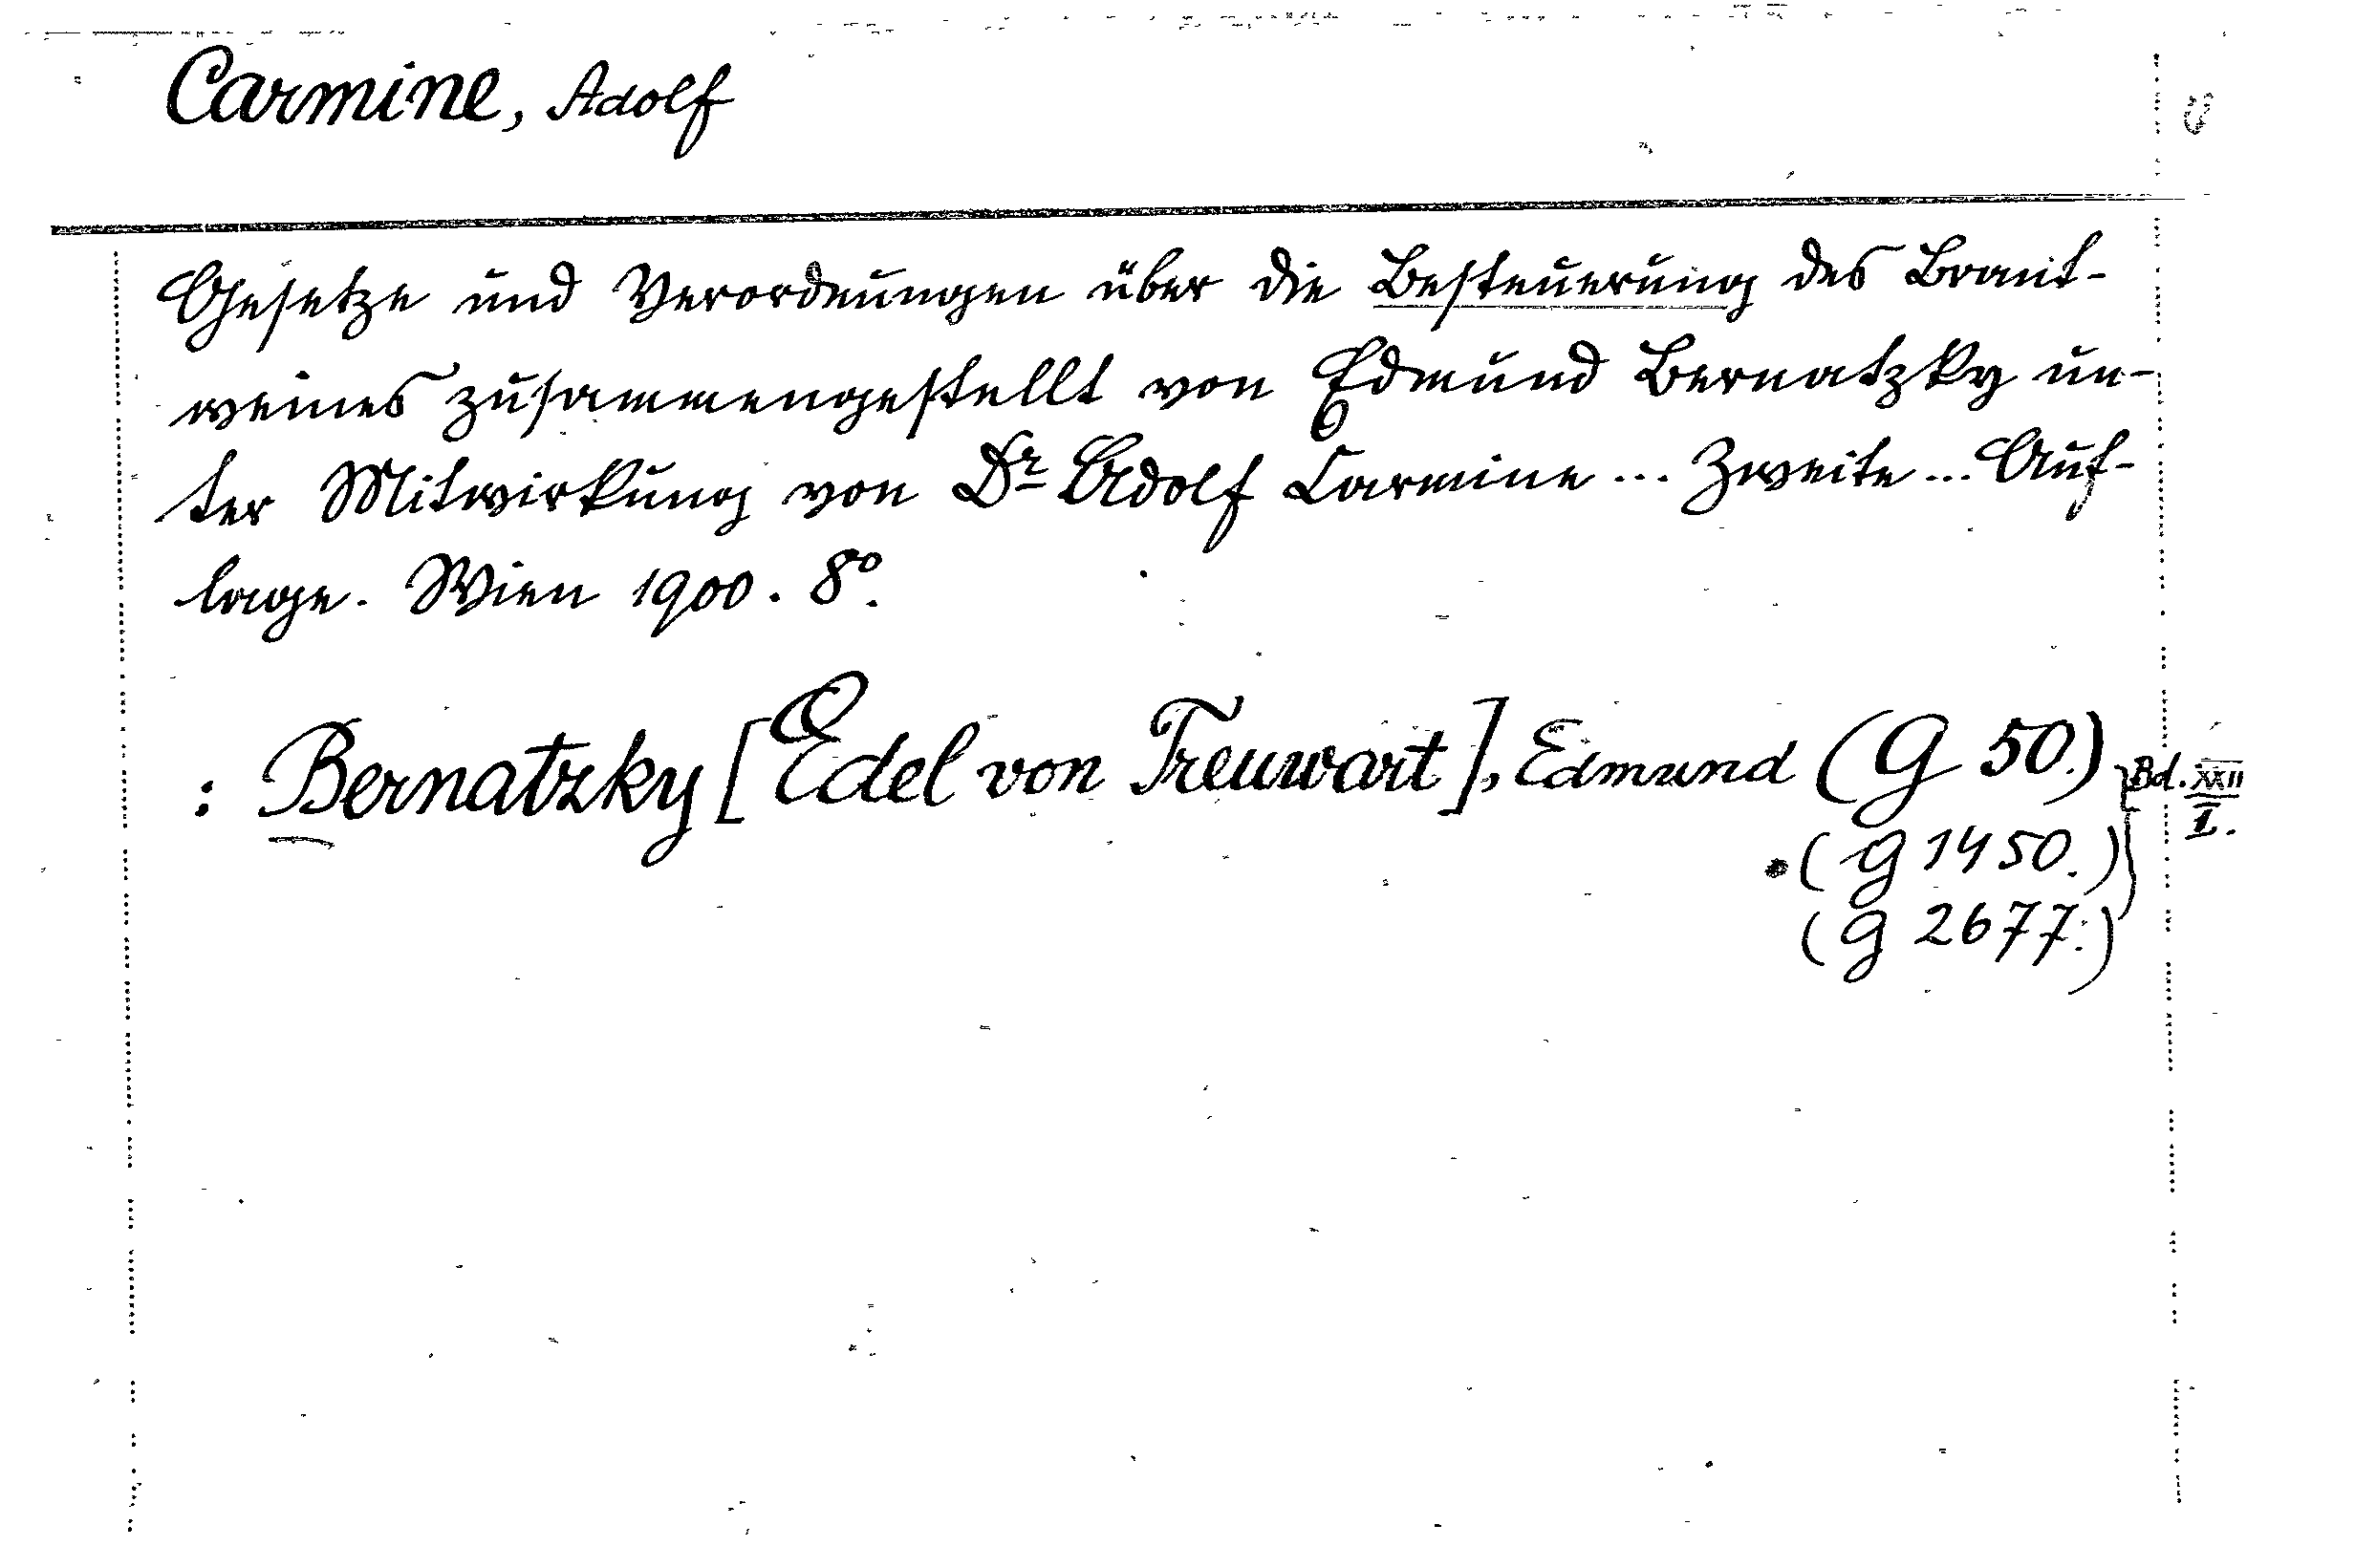 Carmine, Adolf
Gesetze und Verordnungen über die Besteuerung des Brant-
weines zusammengestellt von Edmund Bernatzky un-
ter Mitwirkung von Dr Adolf Carmine ... Zweite ... Auf-
lage. Wien 1900. 8°.
: Bernatzky [Edel von Treuwart], Edmund (G 50.) Bd. XXII
I.
(G 1450.)
(G 2677.)